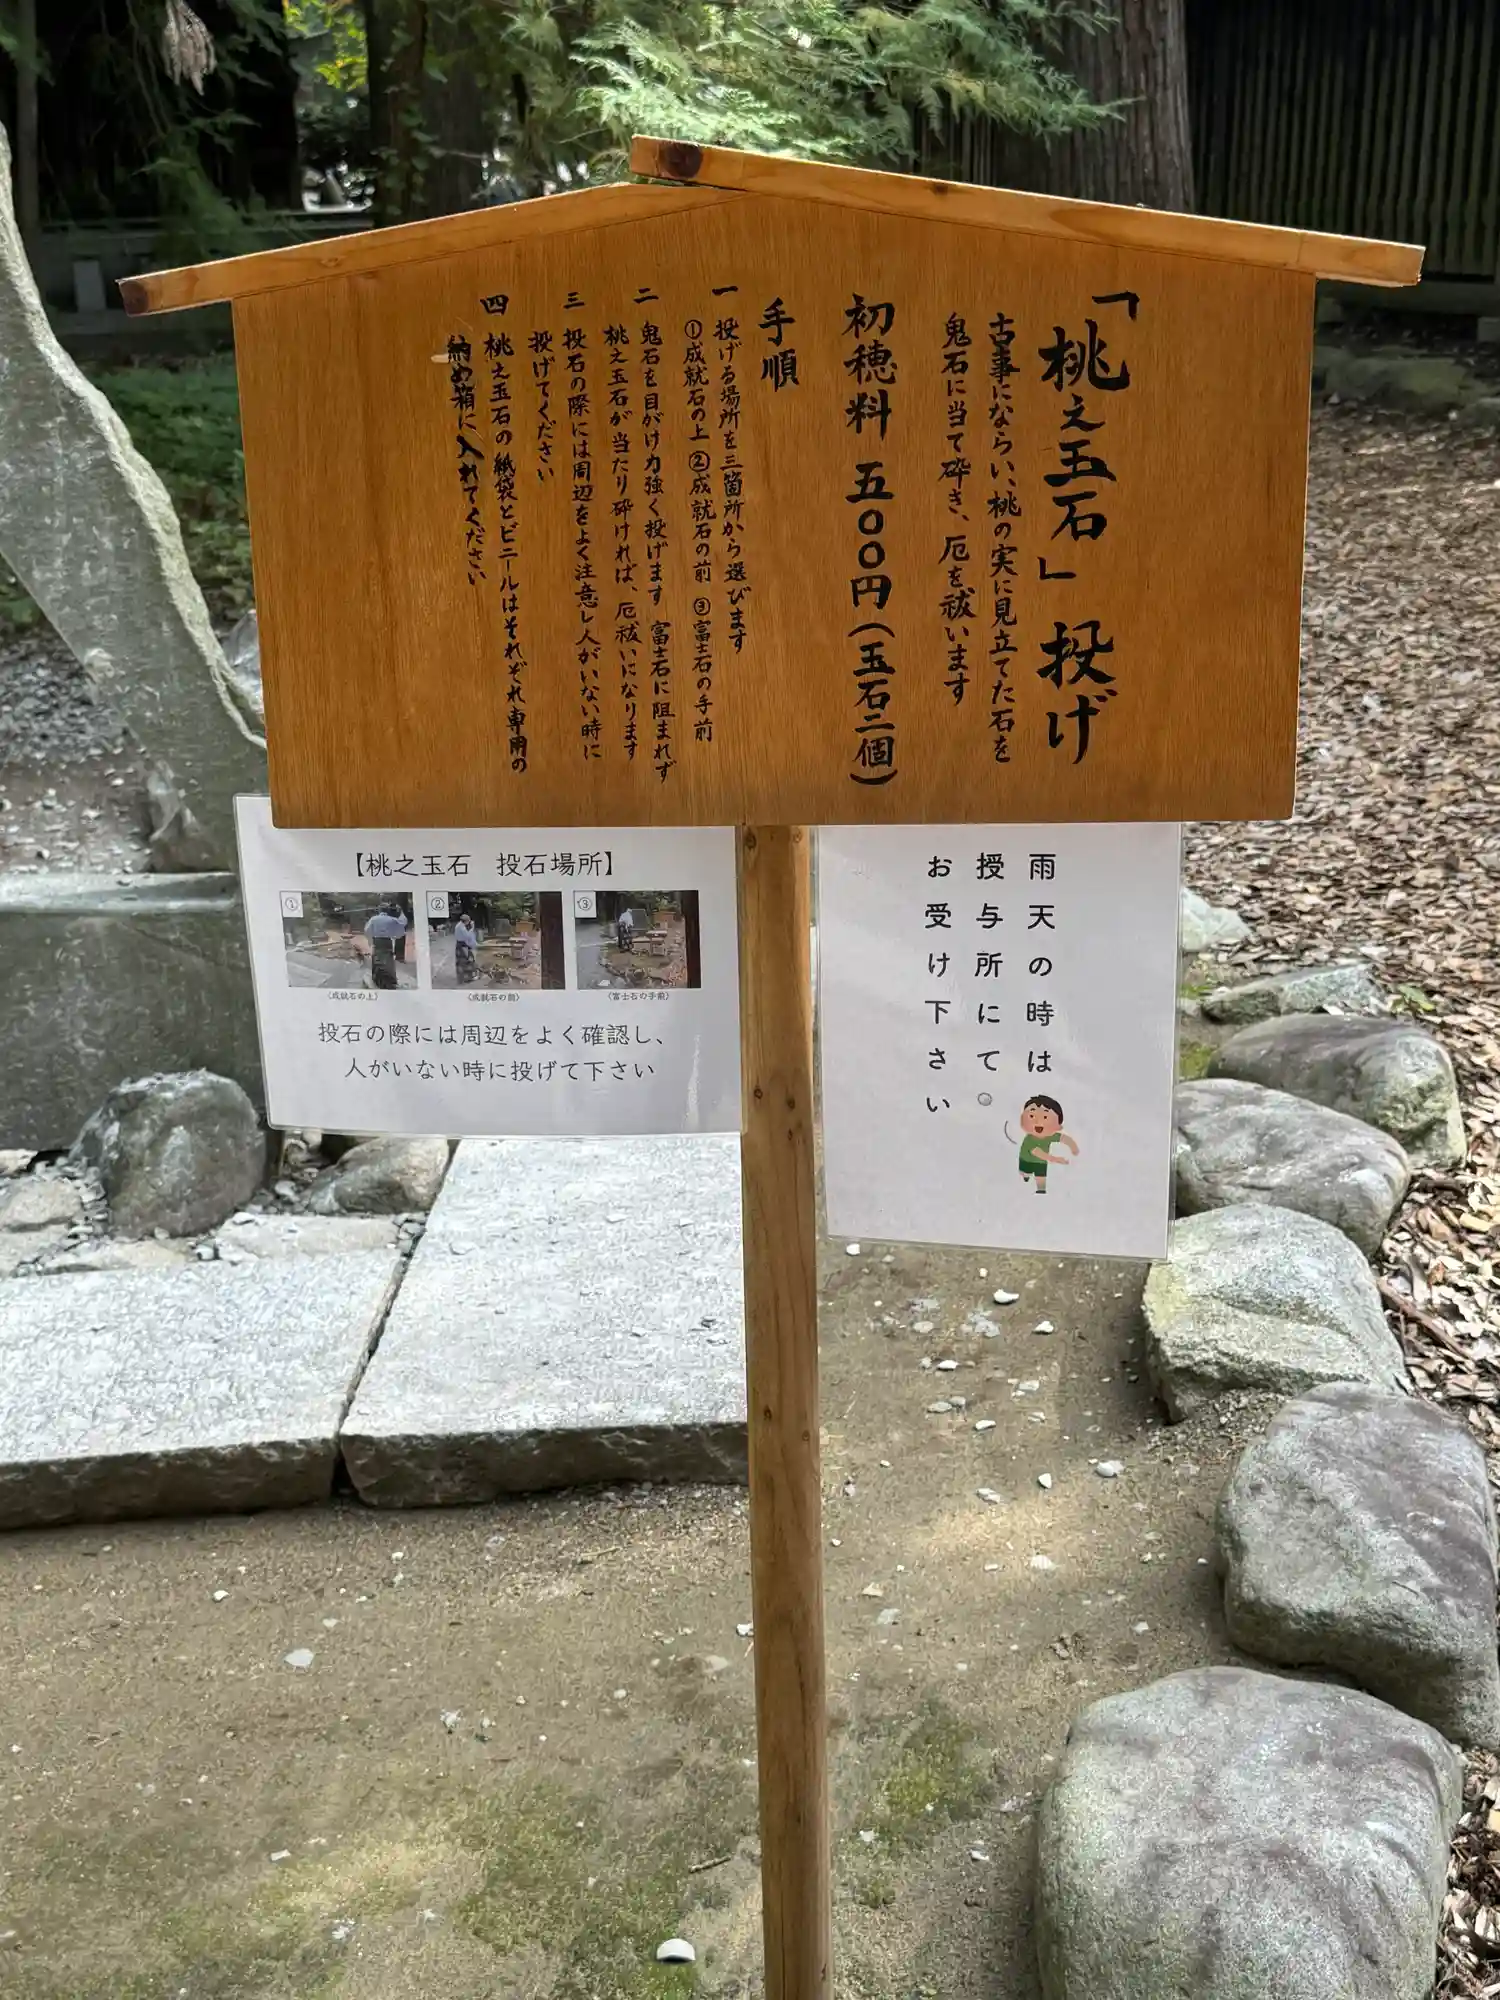 「桃之玉石」投げ
古事にならい、桃の実に見立てた石を
鬼石に当て砕き、厄を祓います
初穂料 五〇〇円(玉石二個)
手順
一 投げる場所を三箇所から選びます
①成就石の上 ②成就石の前 ③富士石の手前
二 鬼石を目がけ力強く投げます 富士石に阻まれず
桃之玉石が当たり砕ければ、厄祓いになります
三 投石の際には周辺をよく注意し人がいない時に
投げてください
四 桃之玉石の紙袋とビニールはそれぞれ専用の
納め箱に入れてください
【桃之玉石 投石場所】
① ② ③
〈成就石の上〉 〈成就石の前〉 〈富士石の手前〉
投石の際には周辺をよく確認し、
人がいない時に投げて下さい
雨天の時は
授与所にて
お受け下さい